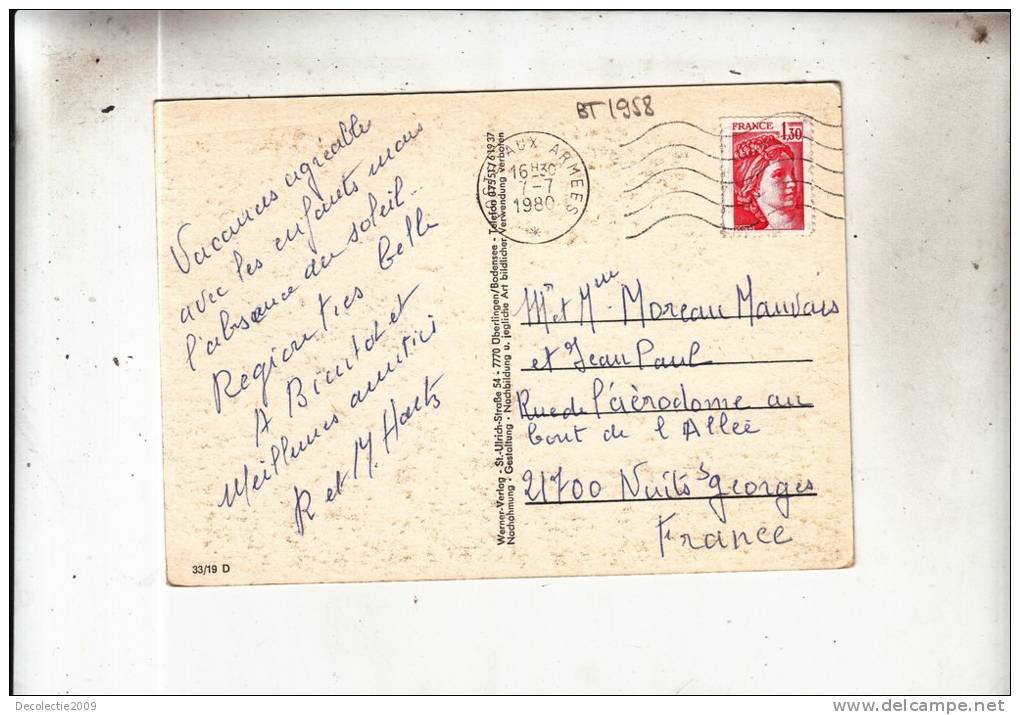 BT 1958
Vacances agréable
avec les enfants mais
l'absence du soleil..
Region tres belle
A Bientot et
Meilleures amitiés
R et M. Hartz
33/19 D
Werner-Verlag - St.-Ulrich-Straße 54 - 7770 Überlingen/Bodensee - Telefon 07551/61937
Nachahmung · Gestaltung · Nachbildung u. jegliche Art bildlicher Verwendung verboten
AUX ARMEES
16H30
7-7
1980
FRANCE
1,30
Mr et Mme Moreau Mauvais
et Jean Paul
Rue de l'aérodome au
bout de l Allée
21700 Nuits s georges
France
Decolectie2009
www.delcampe.net